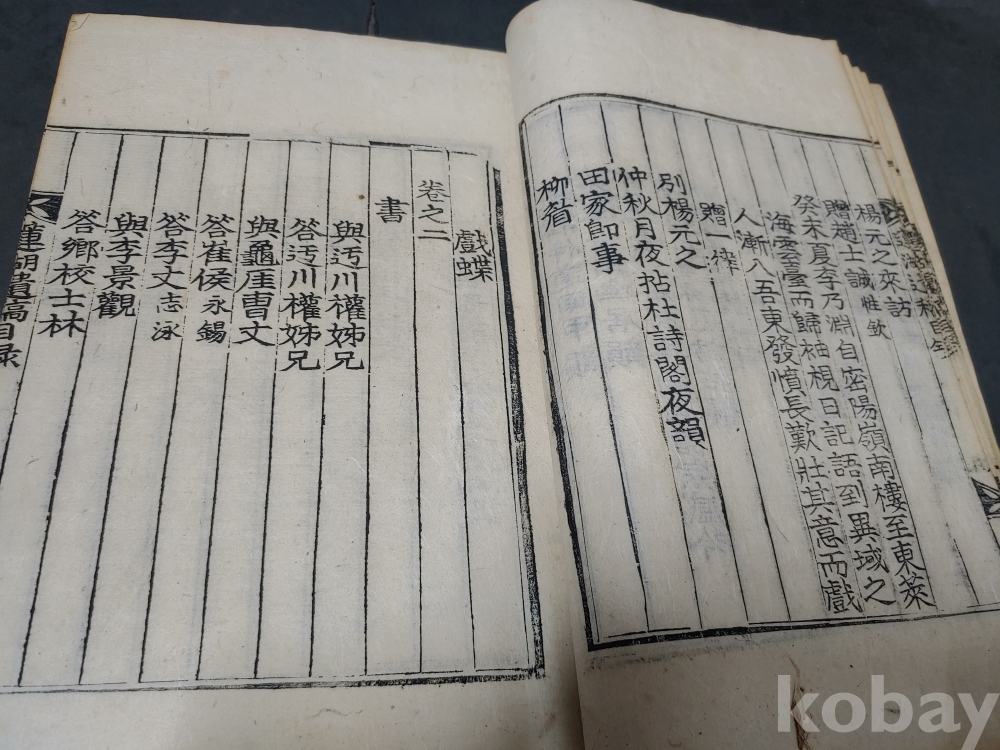 楊元之來訪
贈趙士誠性欽
癸未夏李乃淵自密陽嶺南樓至東萊
海雲臺而歸袖視日記語到異域之
人漸八吾東發憤長歎壯其意而戲
贈一律
別楊元之
仲秋月夜拈杜詩閣夜韻
田家卽事
柳眉
戲蝶
卷之二
書
與迃川權姊兄
答迃川權姊兄
與龜厓曺丈
答崔侯永錫
答李丈志泳
與李景觀
答鄉校士林
蓮湖遺稿目录
kobay